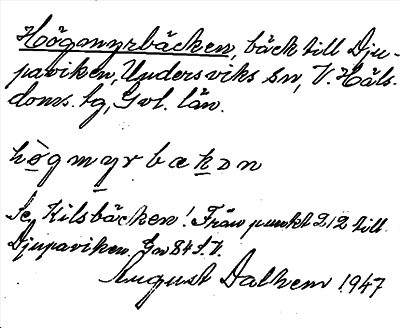 Högmyrbäcken, bäck till Dju-
paviken, Undersviks sn, V. Häls.
doms. tg, Gvl. län.
högmyrbäkən
Se Kilsbäcken! Från punkt 212 till
Djupaviken. Gv 84 S.V.
August Dalhem 1947